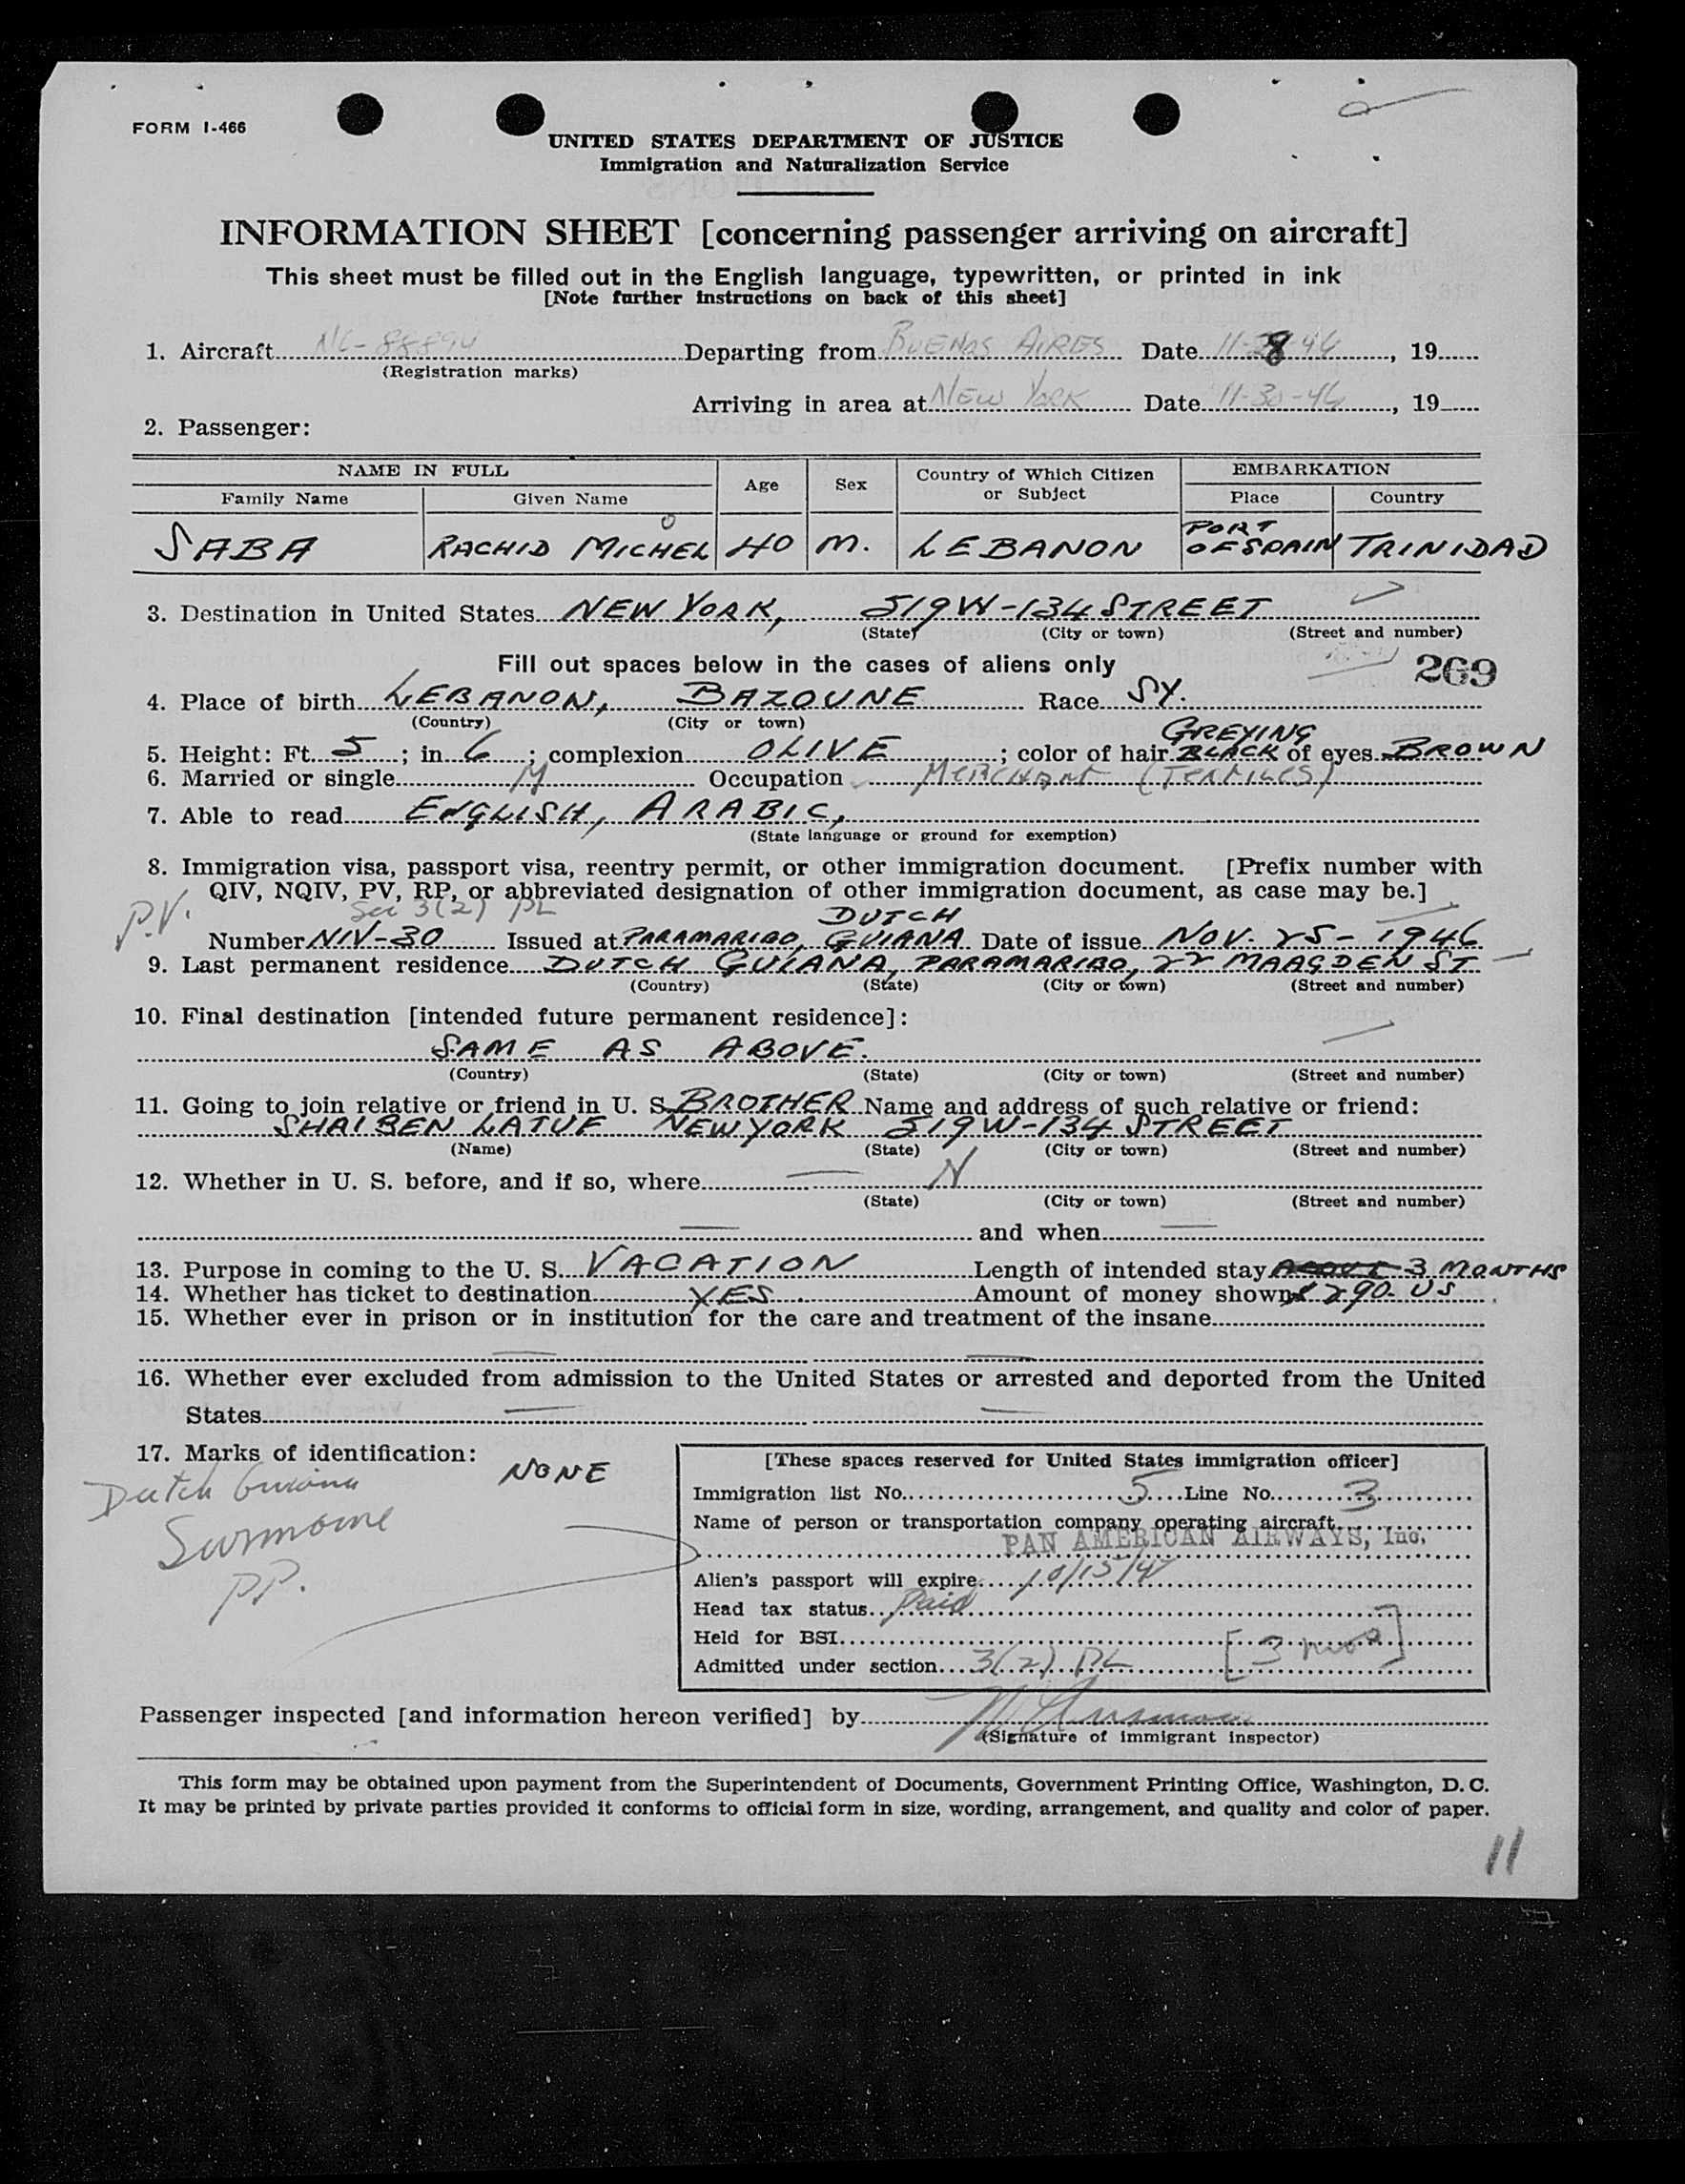 FORM I-466
UNITED STATES DEPARTMENT OF JUSTICE
Immigration and Naturalization Service
INFORMATION SHEET [concerning passenger arriving on aircraft]
This sheet must be filled out in the English language, typewritten, or printed in ink
[Note further instructions on back of this sheet]
1. Aircraft NC-88894 Departing from BUENOS AIRES Date 11-28-46, 19
(Registration marks)
Arriving in area at NEW YORK Date 11-30-46, 19
2. Passenger:
NAME IN FULL Age Sex Country of Which Citizen or Subject EMBARKATION
Family Name Given Name Place Country
SABA RACHID MICHEL 40 M. LEBANON PORT OF SPAIN TRINIDAD
3. Destination in United States NEW YORK, 519 W-134 STREET
(State) (City or town) (Street and number)
Fill out spaces below in the cases of aliens only
269
4. Place of birth LEBANON, BAZOUNE Race SY.
(Country) (City or town)
GREYING
5. Height: Ft. 5; in. 6; complexion OLIVE; color of hair BLACK of eyes BROWN
6. Married or single M Occupation MERCHANT (TEXTILES)
7. Able to read ENGLISH, ARABIC,
(State language or ground for exemption)
8. Immigration visa, passport visa, reentry permit, or other immigration document. [Prefix number with
QIV, NQIV, PV, RP, or abbreviated designation of other immigration document, as case may be.]
P.V. Sec 3(2) DUTCH
Number NIV-30 Issued at PARAMARIBO, GUIANA Date of issue NOV. 25-1946
9. Last permanent residence DUTCH GUIANA, PARAMARIBO, 22 MAAGDEN ST
(Country) (State) (City or town) (Street and number)
10. Final destination [intended future permanent residence]:
SAME AS ABOVE.
(Country) (State) (City or town) (Street and number)
11. Going to join relative or friend in U. S. BROTHER Name and address of such relative or friend:
SHAIBEN LATUF NEW YORK 519 W-134 STREET
(Name) (State) (City or town) (Street and number)
12. Whether in U. S. before, and if so, where — N
(State) (City or town) (Street and number)
— and when —
13. Purpose in coming to the U. S. VACATION Length of intended stay ABOUT 3 MONTHS
14. Whether has ticket to destination YES. Amount of money shown $290. US.
15. Whether ever in prison or in institution for the care and treatment of the insane
— —
16. Whether ever excluded from admission to the United States or arrested and deported from the United
States — —
17. Marks of identification: NONE
Dutch Guiana
PP.
[These spaces reserved for United States immigration officer]
Immigration list No. 5 Line No. 3
Name of person or transportation company operating aircraft
PAN AMERICAN AIRWAYS, Inc.
Alien's passport will expire 10/15/47
Head tax status Paid
Held for BSI [3 mos]
Admitted under section 3(2)
Passenger inspected [and information hereon verified] by
(Signature of immigrant inspector)
This form may be obtained upon payment from the Superintendent of Documents, Government Printing Office, Washington, D.C.
It may be printed by private parties provided it conforms to official form in size, wording, arrangement, and quality and color of paper.
11